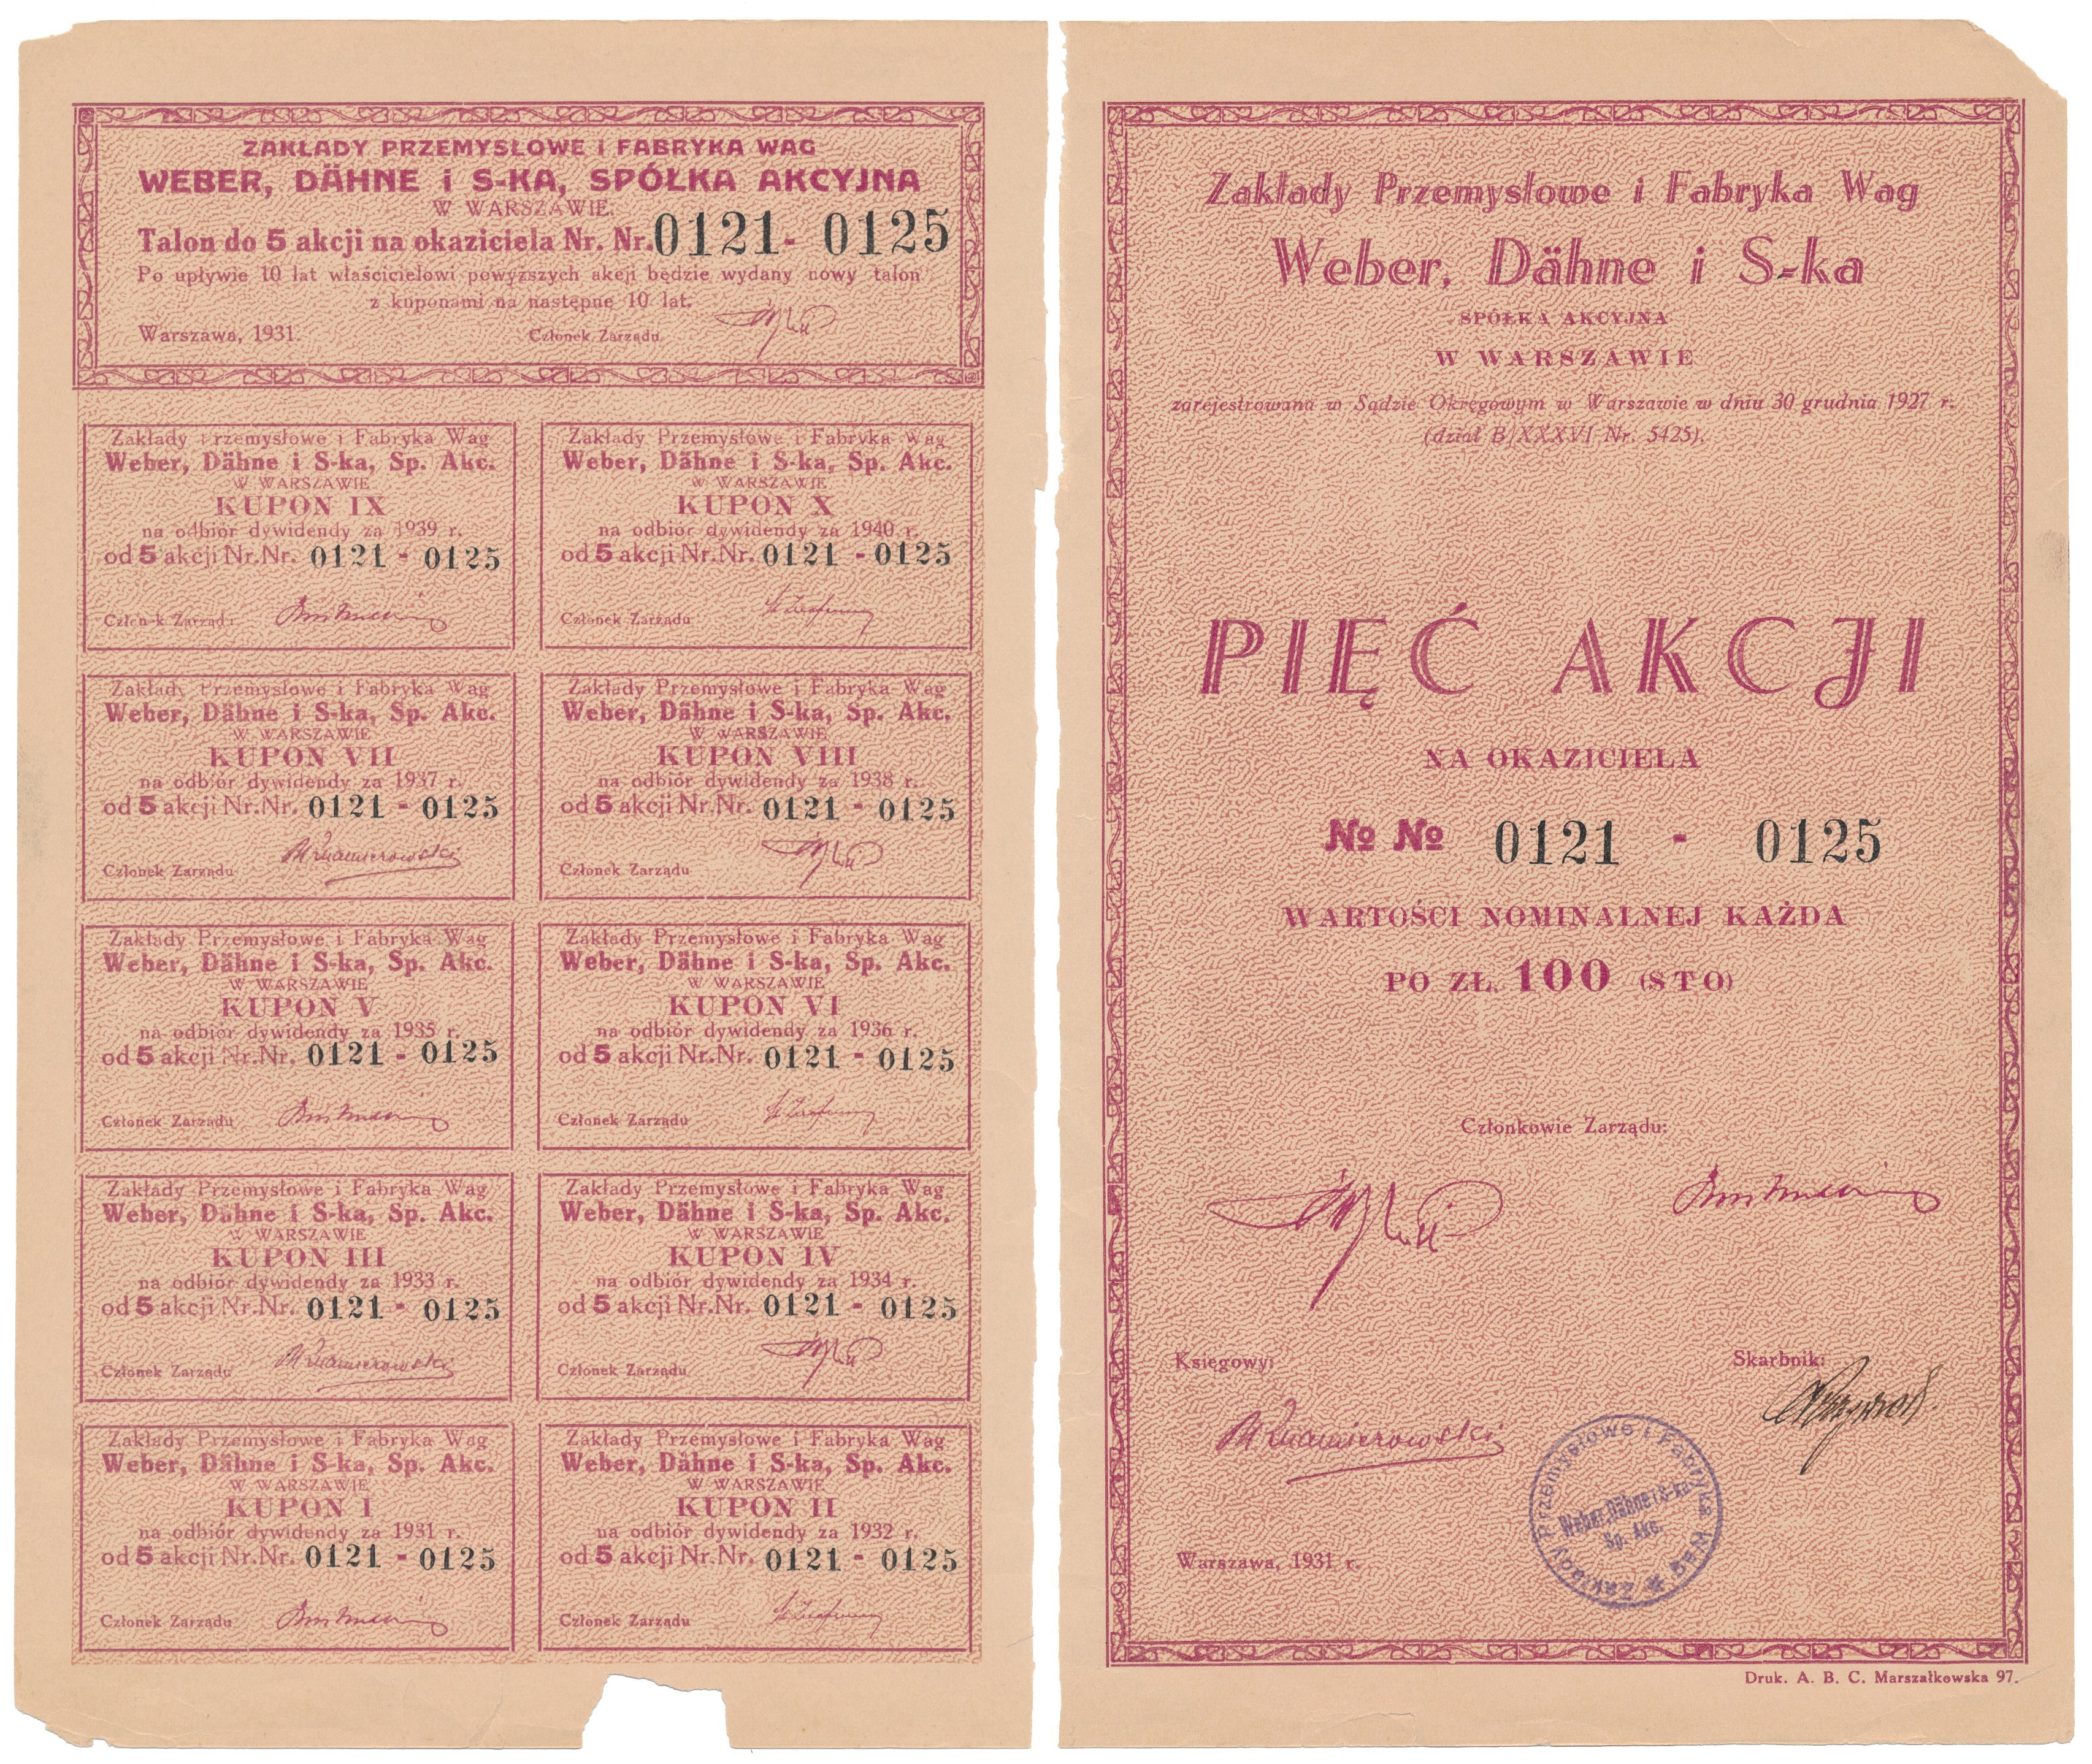 ZAKŁADY PRZEMYSŁOWE i FABRYKA WAG
WEBER, DÄHNE i S-KA, SPÓŁKA AKCYJNA
W WARSZAWIE.
Talon do 5 akcji na okaziciela Nr. Nr. 0121 - 0125
Po upływie 10 lat właścicielowi powyższych akcji będzie wydany nowy talon
z kuponami na następne 10 lat.
Warszawa, 1931. Członek Zarządu
Zakłady Przemysłowe i Fabryka Wag
Weber, Dähne i S-ka, Sp. Akc.
W WARSZAWIE
KUPON IX
na odbiór dywidendy za 1939 r.
od 5 akcji Nr. Nr. 0121 - 0125
Człon-k Zarząd
Zakłady Przemysłowe i Fabryka Wag
Weber, Dähne i S-ka, Sp. Akc.
W WARSZAWIE
KUPON X
na odbiór dywidendy za 1940 r.
od 5 akcji Nr. Nr. 0121 - 0125
Członek Zarządu
Zakłady Przemysłowe i Fabryka Wag
Weber, Dähne i S-ka, Sp. Akc.
W WARSZAWIE
KUPON VII
na odbiór dywidendy za 1937 r.
od 5 akcji Nr. Nr. 0121 - 0125
Członek Zarządu
Zakłady Przemysłowe i Fabryka Wag
Weber, Dähne i S-ka, Sp. Akc.
W WARSZAWIE
KUPON VIII
na odbiór dywidendy za 1938 r.
od 5 akcji Nr. Nr. 0121 - 0125
Członek Zarządu
Zakłady Przemysłowe i Fabryka Wag
Weber, Dähne i S-ka, Sp. Akc.
W WARSZAWIE
KUPON V
na odbiór dywidendy za 1935 r.
od 5 akcji Nr. Nr. 0121 - 0125
Członek Zarządu
Zakłady Przemysłowe i Fabryka Wag
Weber, Dähne i S-ka, Sp. Akc.
W WARSZAWIE
KUPON VI
na odbiór dywidendy za 1936 r.
od 5 akcji Nr. Nr. 0121 - 0125
Członek Zarządu
Zakłady Przemysłowe i Fabryka Wag
Weber, Dähne i S-ka, Sp. Akc.
W WARSZAWIE
KUPON III
na odbiór dywidendy za 1933 r.
od 5 akcji Nr. Nr. 0121 - 0125
Członek Zarządu
Zakłady Przemysłowe i Fabryka Wag
Weber, Dähne i S-ka, Sp. Akc.
W WARSZAWIE
KUPON IV
na odbiór dywidendy za 1934 r.
od 5 akcji Nr. Nr. 0121 - 0125
Członek Zarządu
Zakłady Przemysłowe i Fabryka Wag
Weber, Dähne i S-ka, Sp. Akc.
W WARSZAWIE
KUPON I
na odbiór dywidendy za 1931 r.
od 5 akcji Nr. Nr. 0121 - 0125
Członek Zarządu
Zakłady Przemysłowe i Fabryka Wag
Weber, Dähne i S-ka, Sp. Akc.
W WARSZAWIE
KUPON II
na odbiór dywidendy za 1932 r.
od 5 akcji Nr. Nr. 0121 - 0125
Członek Zarządu
Zakłady Przemysłowe i Fabryka Wag
Weber, Dähne i S-ka
SPÓŁKA AKCYJNA
W WARSZAWIE
zarejestrowana w Sądzie Okręgowym w Warszawie w dniu 30 grudnia 1927 r.
(dział B/XXXVI Nr. 5425).
PIĘĆ AKCJI
NA OKAZICIELA
№ № 0121 - 0125
WARTOŚCI NOMINALNEJ KAŻDA
PO ZŁ. 100 (STO)
Członkowie Zarządu:
Księgowy: Skarbnik:
Zakłady Przemysłowe i Fabryka Wag
Weber, Dähne i S-ka
Sp. Akc.
Warszawa, 1931 r.
Druk. A. B. C. Marszałkowska 97.